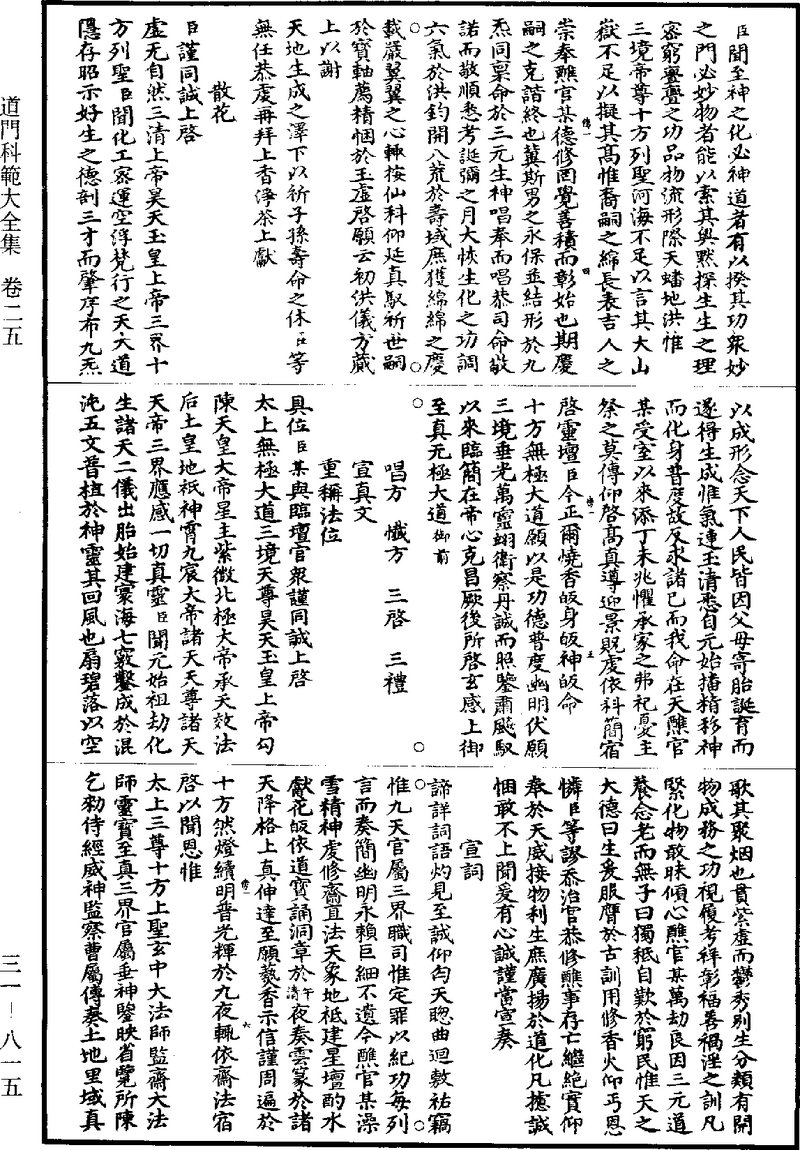 臣聞至神之化必神道者有以揆其功衆妙
之門必妙物者能以索其輿黙探生生之理
密窮亹亹之功品物流形際天蟠地洪惟
三境帝尊十方列聖河海不足以言其大山
嶽不足以擬其髙惟裔嗣之綿長表吉人之
崇奉醮官某德修罔覺善積而彰始也期慶
嗣之克諧終也冀斯男之永保並結形於九
炁同稟命於三元生神唱奉而唱恭司命敬
諾而敬順悉考誕彌之月大恢生化之功調
六氣於洪鈞開八荒於壽域庶獲綿綿之慶
載嚴翼翼之心輙按仙科仰延真馭祈世嗣
於寶軸薦精悃於玉虛啓願云初供儀方蕆
上以謝
天地生成之澤下以祈子孫壽命之休臣等
無任恭虔再拜上香淨茶上獻
散花
臣謹同誠上啓
虛无自然三清上帝昊天玉皇上帝三界十
方列聖臣聞化工宻運空浮梵行之天大道
隱存昭示好生之德剖三才而肇序布九炁
以成形念天下人民皆因父母寄胎誕育而
遂得生成惟氣連玉清悉自元始播精移神
而化身普度故反求諸已而我命在天醮官
某受室以來添丁未兆懼承家之弗祀憂主
祭之莫傳仰啓髙真導迎景貺虔依科簡宿
啓靈壇臣今正爾燒香皈身皈神皈命
十方無極大道願以是功德普度幽明伏願
三境垂光萬靈翊衛察丹誠而照鑒肅飈馭
以來臨簡在帝心克昌厥後所啓玄感上御
至真无極大道御前
唱方 懺方 三啓 三禮
宣真文
重稱法位
具位臣某與臨壇官衆謹同誠上啓
太上無極大道三境天尊昊天玉皇上帝勾
陳天皇大帝星主紫微北極大帝承天效法
后土皇地祇神霄九宸大帝諸天天尊諸天
天帝三界應感一切真靈臣聞元始祖劫化
生諸天二儀出胎始建寰海七竅鑿成於混
沌五文普植於神靈其回風也扇碧落以空
歌其聚烟也貫紫虛而鬱秀别生分類有開
物成務之功視履考祥彰福善禍淫之訓凡
緊化物敢昧傾心醮官某萬劫良因三元道
養念老而無子曰獨秪自歎於窮民惟天之
大德曰生爰服膺於古訓用修香火仰丐恩
憐臣等謬忝治官恭修醮事存亡繼絶實仰
奉於天威接物利生庶廣揚於道化凡攄誠
悃敢不上聞爰有心誠謹當宣奏
宣詞
諦詳詞語灼見至誠仰匄天聰曲迴敷祐竊
惟九天官屬三界職司惟定罪以紀功每列
言而奏簡幽明永賴巨細不遺今醮官某澡
雪精神虔修齋直法天象地祇建星壇酌水
獻花皈依道寶誦洞章於清午夜奏雲篆於諸
天降格上真伸達至願爇香示信謹周遍於
十方然燈續明普光輝於九夜輙依齋法宿
啓以聞恩惟
太上三尊十方上聖玄中大法師監齋大法
師靈寶至真三界官屬垂神鑒映省覽所陳
乞勑侍經威神監察曹屬傳奏土地里域真
道門科範大全集 卷二五
三一－八一五